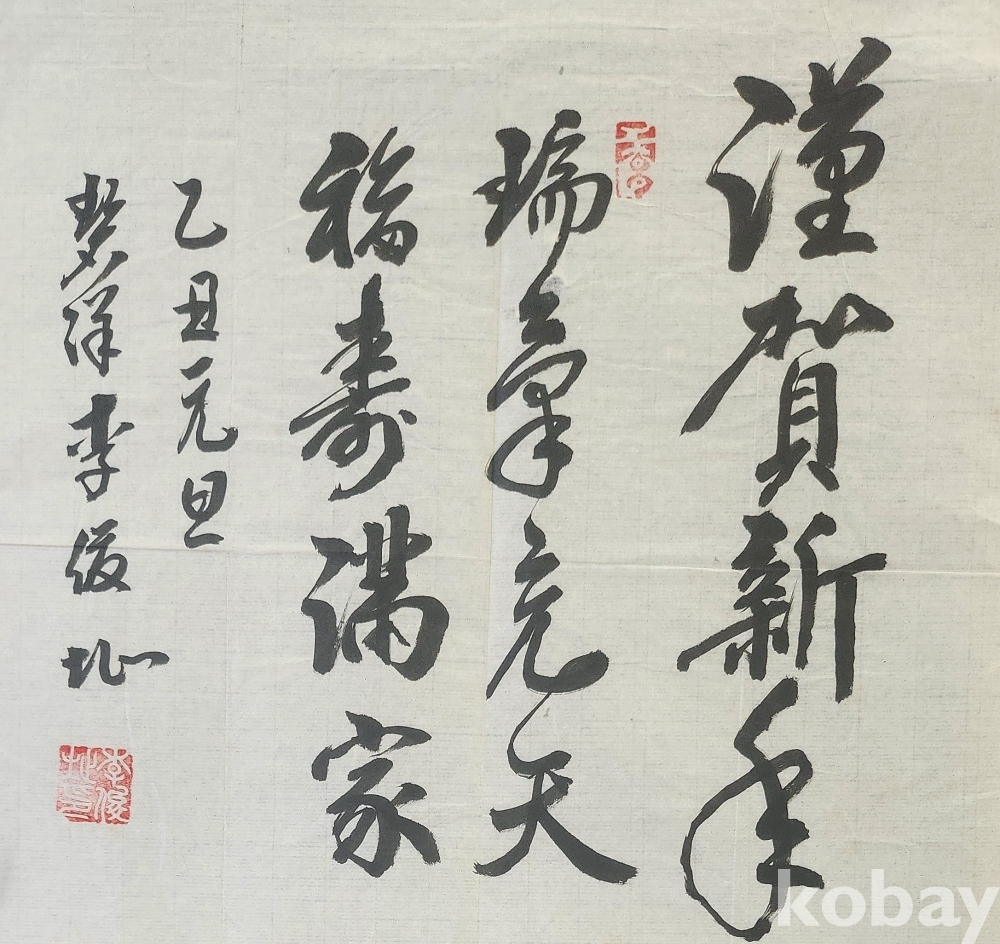 謹賀新年
瑞氣充天
福壽滿家
乙丑元旦
碧洋李俊
kobay